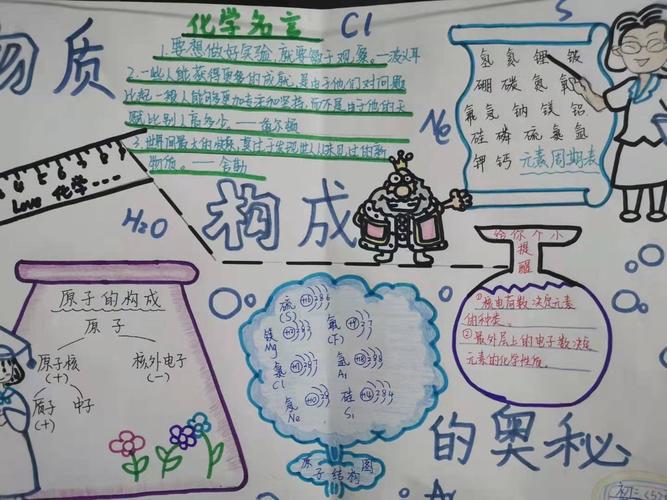 物质
化学名言
Cl
S
1.要想做好实验,就要敢于观察。——波义耳
2.一些人能获得更多的成就,是由于他们对问题
比起一般人能够更加专注和坚持,而不是由于他的天
赋比别人高多少。——道尔顿
3.世界间最大的快乐,莫过于发现世人从未见过的新
物质。——舍勒
氢 氦 锂 铍
硼 碳 氮 氧
氟 氖 钠 镁 铝
硅 磷 硫 氯 氩
钾 钙 元素周期表
Ne
4 5 6 7 8 9
Love 化学...
H2O
构成
给你个小
提
醒
①核电荷数决定元素
的种类。
②最外层上的电子数决定
元素的化学性质。
原子的构成
原子
原子核 核外电子
(+) (-)
质子 中子
(+)
硫 +16 2 8 6
(S)
氟 +9 2 7
(F)
镁
Mg
氩 +18 2 8 8
氯
Cl
硅 +14 2 8 4
Si
氖 +10 2 8
Ne
原子结构图
的奥秘